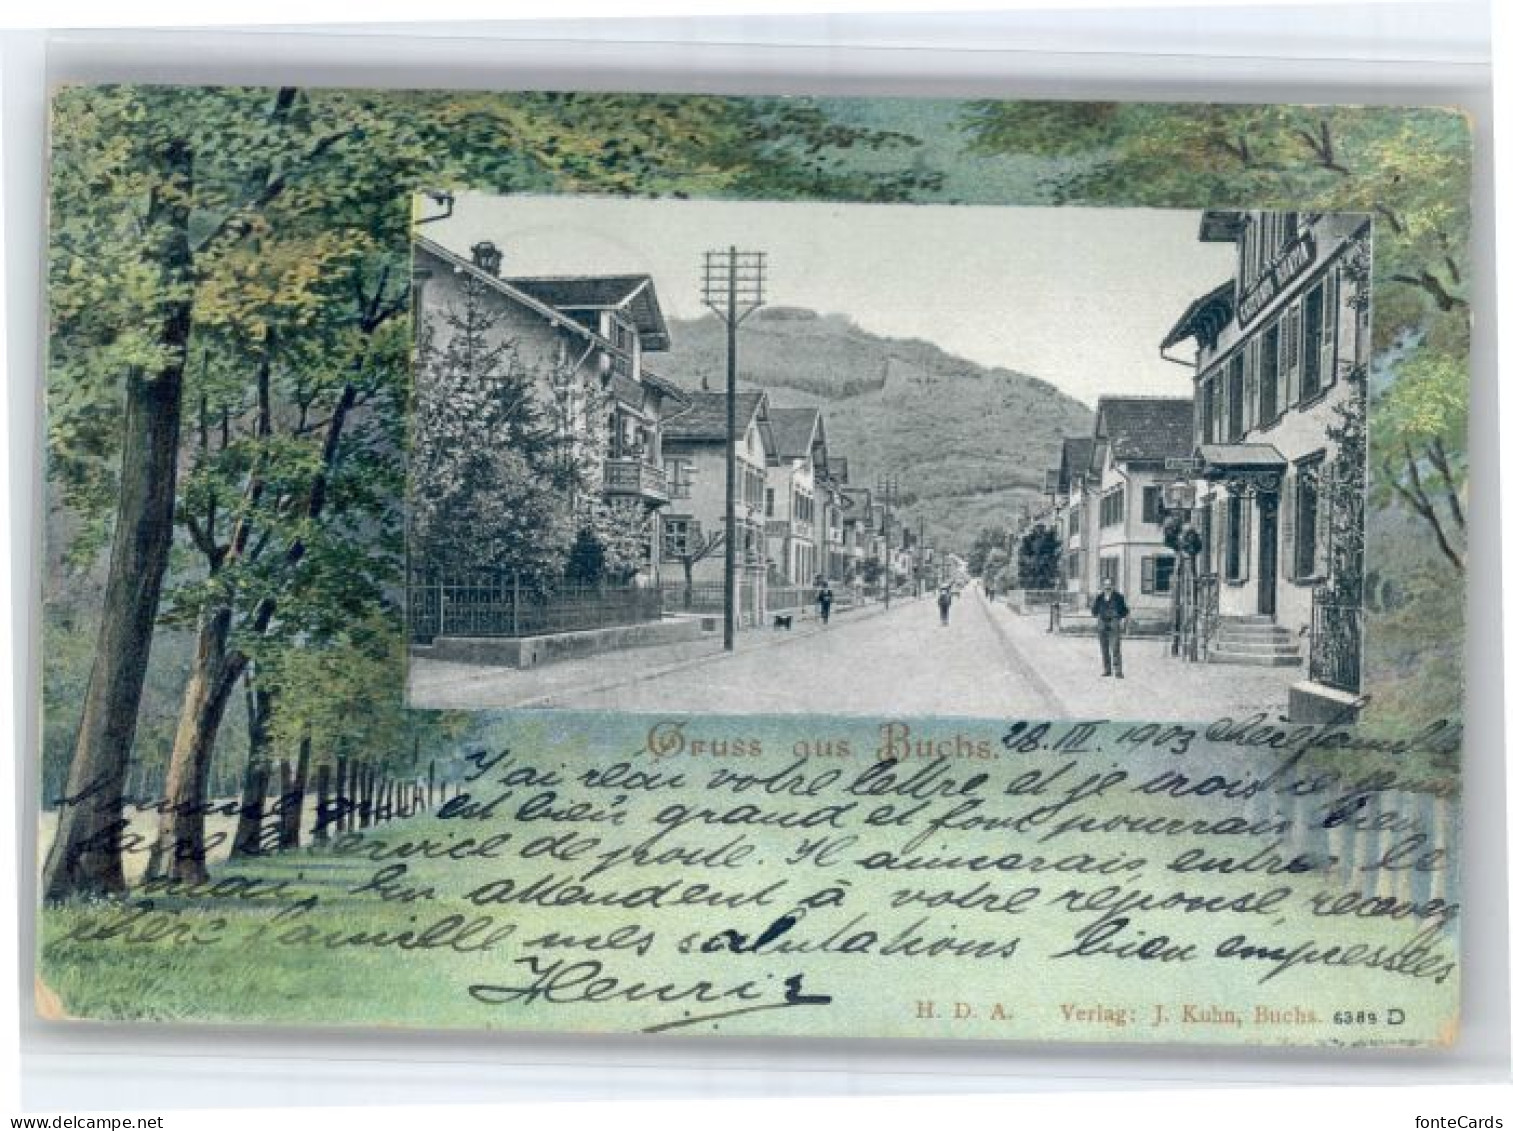 Gruss aus Buchs.
28. III. 1903 chère famille
J'ai reçu votre lettre et je crois
est bien grand et fort pourrais bien
faire le service de poste. Il aimerais entrer le
mai, En attendent à votre réponse, recevez
chère famille mes salutations bien empressées
Henri
H. D. A. Verlag: J. Kuhn, Buchs. 6389 D
fonteCards